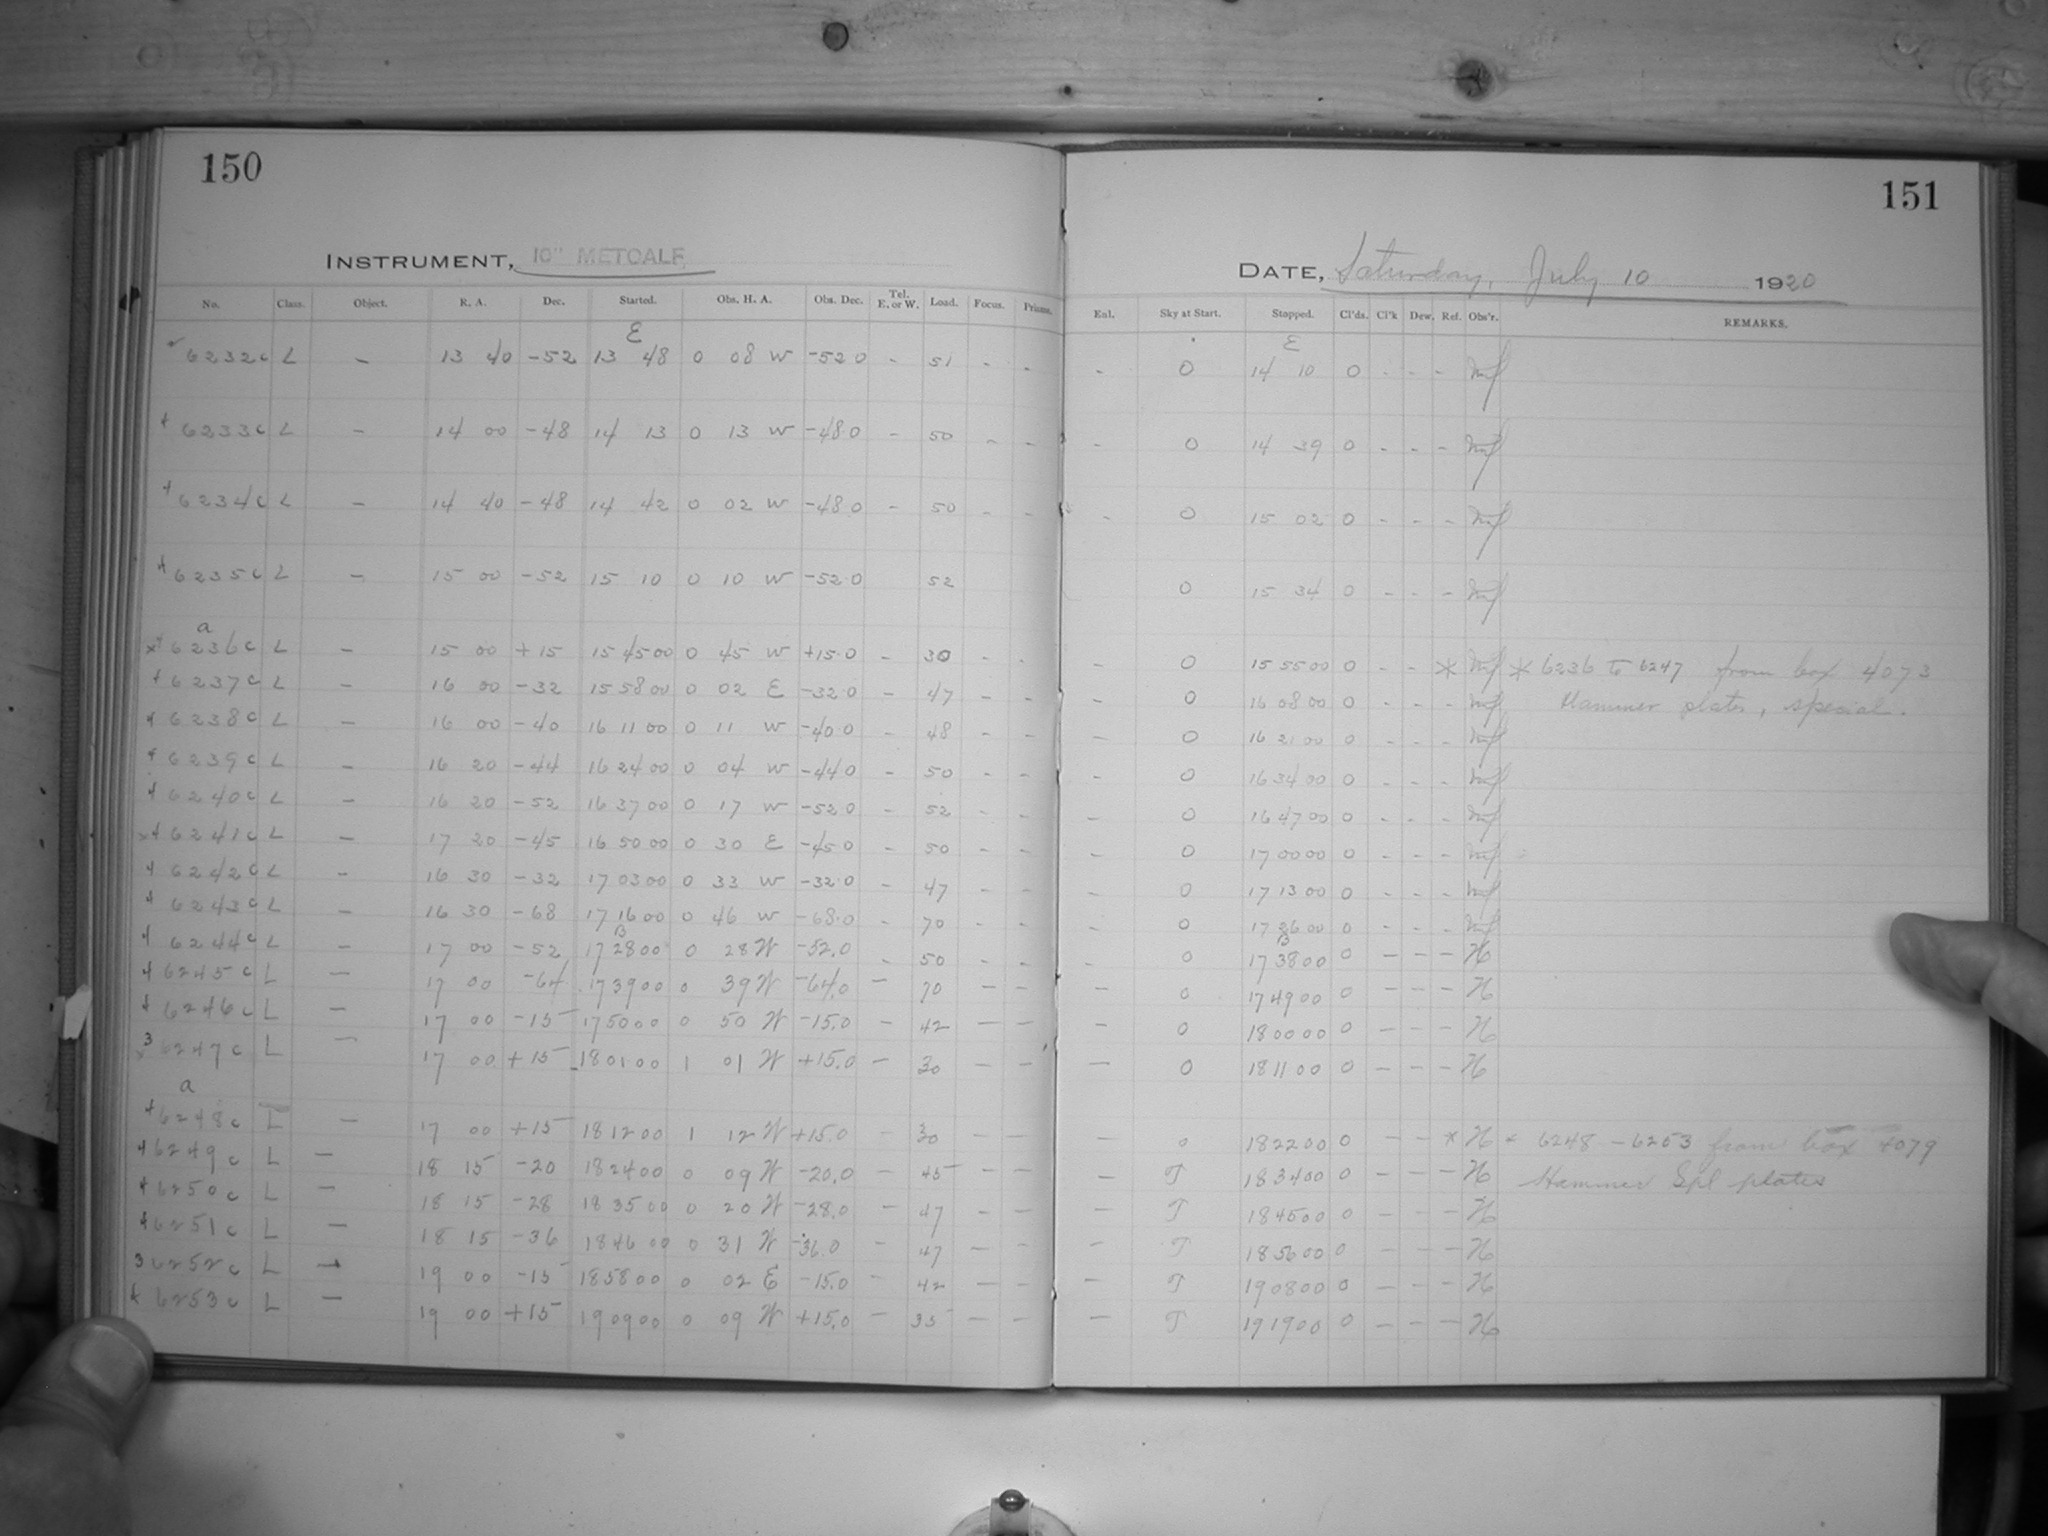 150
INSTRUMENT, 10" METCALF
No. Class. Object. R. A. Dec. Started. Obs. H. A. Obs. Dec. Tel. E. or W. Load. Focus. Prisms.
E
6232c L – 13 40 -52 13 48 0 08 W -52 0 - 51 - -
6233c L – 14 00 -48 14 13 0 13 W -48.0 - 50 - -
6234c L – 14 40 -48 14 42 0 02 W -48.0 - 50 - -
6235c L – 15 00 -52 15 10 0 10 W -52.0 52
a
6236c L – 15 00 +15 15 45 00 0 45 W +15.0 - 30 - -
6237c L – 16 00 -32 15 58 00 0 02 E -32.0 - 47 - -
6238c L – 16 00 -40 16 11 00 0 11 W -40.0 - 48 - -
6239c L – 16 20 -44 16 24 00 0 04 W -44.0 - 50 - -
6240c L – 16 20 -52 16 37 00 0 17 W -52.0 - 52 - -
6241c L – 17 20 -45 16 50 00 0 30 E -45.0 - 50 - -
6242c L – 16 30 -32 17 03 00 0 33 W -32.0 - 47 - -
6243c L – 16 30 -68 17 16 00 0 46 W -68.0 - 70 - -
B
6244c L – 17 00 -52 17 28 00 0 28 W -52.0 - 50 - -
6245c L – 17 00 -64 17 39 00 0 39 W -64.0 – 70 – –
6246c L – 17 00 -15 17 50 00 0 50 W -15.0 – 42 – –
6247c L – 17 00 +15 18 01 00 1 01 W +15.0 – 30 – –
a
6248c L – 17 00 +15 18 12 00 1 12 W +15.0 – 30 – –
6249c L – 18 15 -20 18 24 00 0 09 W -20.0 – 45 – –
6250c L – 18 15 -28 18 35 00 0 20 W -28.0 – 47 – –
6251c L – 18 15 -36 18 46 00 0 31 W -36.0 – 47 – –
6252c L – 19 00 -15 18 58 00 0 02 E -15.0 – 42 – –
6253c L – 19 00 +15 19 09 00 0 09 W +15.0 – 35 – –
151
DATE, Saturday, July 10 1920
Enl. Sky at Start. Stopped. Cl'ds. Cl'k Dew. Ref. Obs'r. REMARKS.
E
- 0 14 10 0 - - -
- 0 14 39 0 - - -
- 0 15 02 0 - - -
0 15 34 0 - - -
- 0 15 55 00 0 - - * * 6236 to 6247 from box 4073
- 0 16 08 00 0 - - - Hammer plates, special.
- 0 16 21 00 0 - - -
- 0 16 34 00 0 - - -
- 0 16 47 00 0 - - -
- 0 17 00 00 0 - - -
- 0 17 13 00 0 - - -
- 0 17 26 00 0 - - -
B
- 0 17 38 00 0 – – – H
– 0 17 49 00 0 – – – H
– 0 18 00 00 0 – – – H
– 0 18 11 00 0 – – – H
– 0 18 22 00 0 – – * H * 6248 – 6253 from box 4079
– T 18 34 00 0 – – – H Hammer Spl plates
– T 18 45 00 0 – – – H
– T 18 56 00 0 – – – H
– T 19 08 00 0 – – – H
– T 19 19 00 0 – – – H